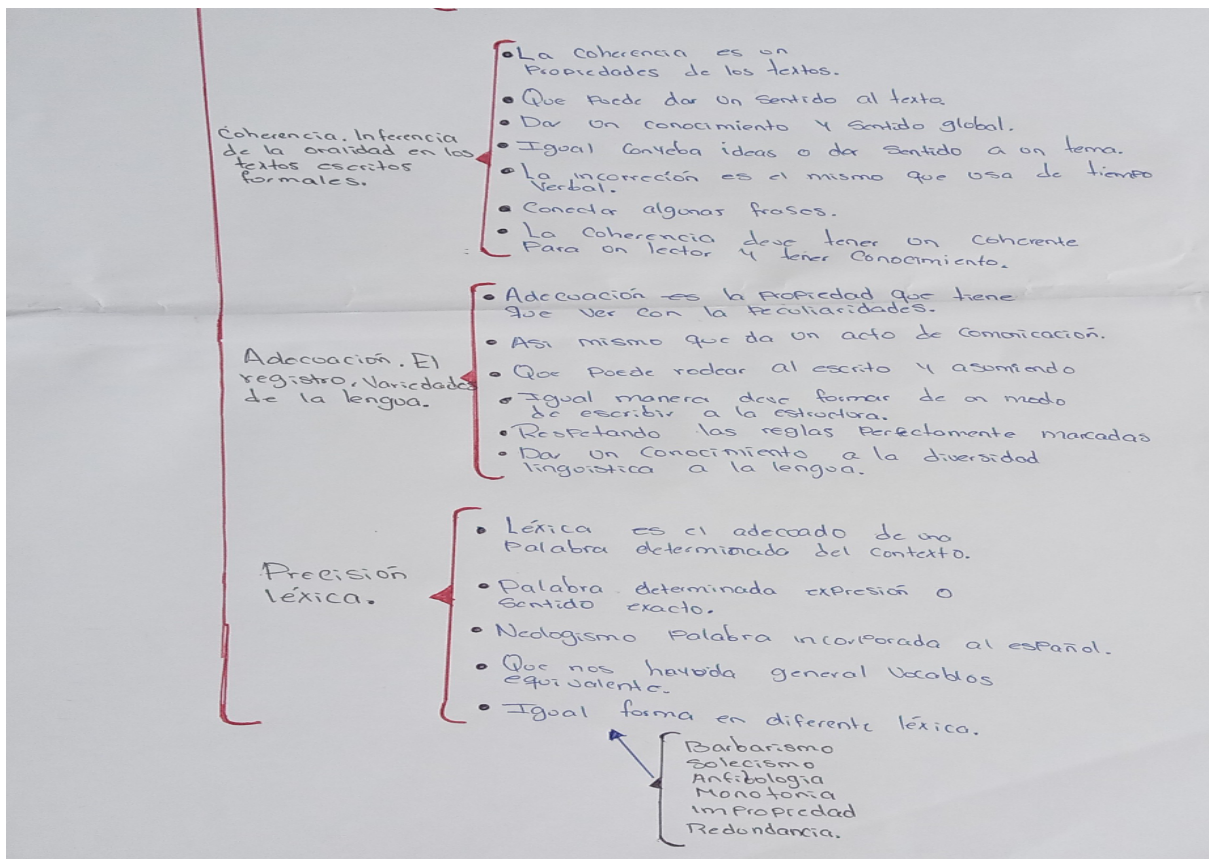 Coherencia. Inferencia
de la oralidad en los
textos escritos
formales.
• La Coherencia es un
Propiedades de los textos.
• Que Puede dar un sentido al texto.
• Dar un conocimiento y sentido global.
• Igual conveba ideas o dar sentido a un tema.
• La incorreción es el mismo que usa de tiempo
Verbal.
• Conectar algunas frases.
• La Coherencia deve tener un coherente
Para un lector y tener Conocimiento.
Adecuación. El
registro, Variedades
de la lengua.
• Adecuación es la Propiedad que tiene
que ver con la Peculiaridades.
• Asi mismo que da un acto de comunicación.
• Que Puede rodear al escrito y asumiendo
• Igual manera deve formar de un modo
de escribir a la estructura.
• Respetando las reglas Perfectamente marcadas
• Dar un conocimiento a la diversidad
linguistica a la lengua.
Precisión
léxica.
• Léxica es el adecuado de una
Palabra determinada del contexto.
• Palabra determinada expresión o
Sentido exacto.
• Neologismo Palabra incorporada al español.
• Que nos general Vocablos
equivalente.
• Igual forma en diferente léxica.
Barbarismo
Solecismo
Anfibología
Monotonía
Impropiedad
Redundancia.